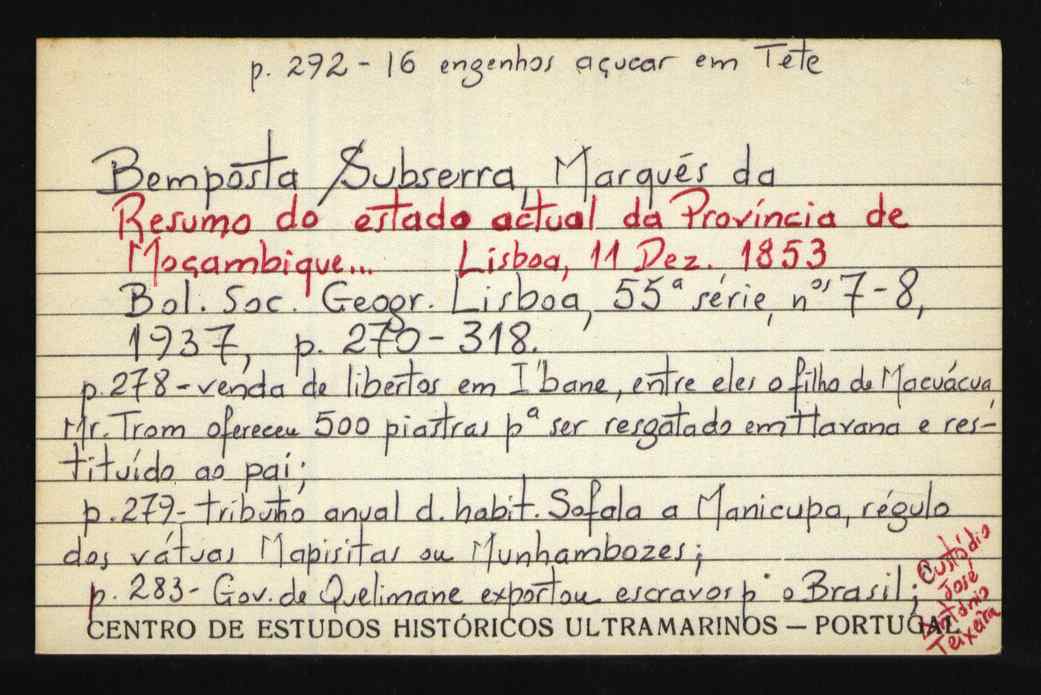 p. 292 - 16 engenhos açucar em Tete
Bemposta Subserra, Marqués da
Resumo do estado actual da Província de
Moçambique... Lisboa, 11 Dez. 1853
Bol. Soc. Geogr. Lisboa, 55ª série, nºs 7-8,
1937, p. 270-318.
p.278-venda de libertos em I'bane, entre eles o filho de Macuácua
Mr. Trom ofereceu 500 piastras pª ser resgatado em Havana e res-
tituído ao pai;
p.279- tributo anual d. habit. Sofala a Manicupa, régulo
dos vátuas Mapisitas ou Munhambozes;
p. 283- Gov. de Quelimane exportou escravos p' o Brasil;
Custódio
José
António
Teixeira
CENTRO DE ESTUDOS HISTÓRICOS ULTRAMARINOS — PORTUGAL